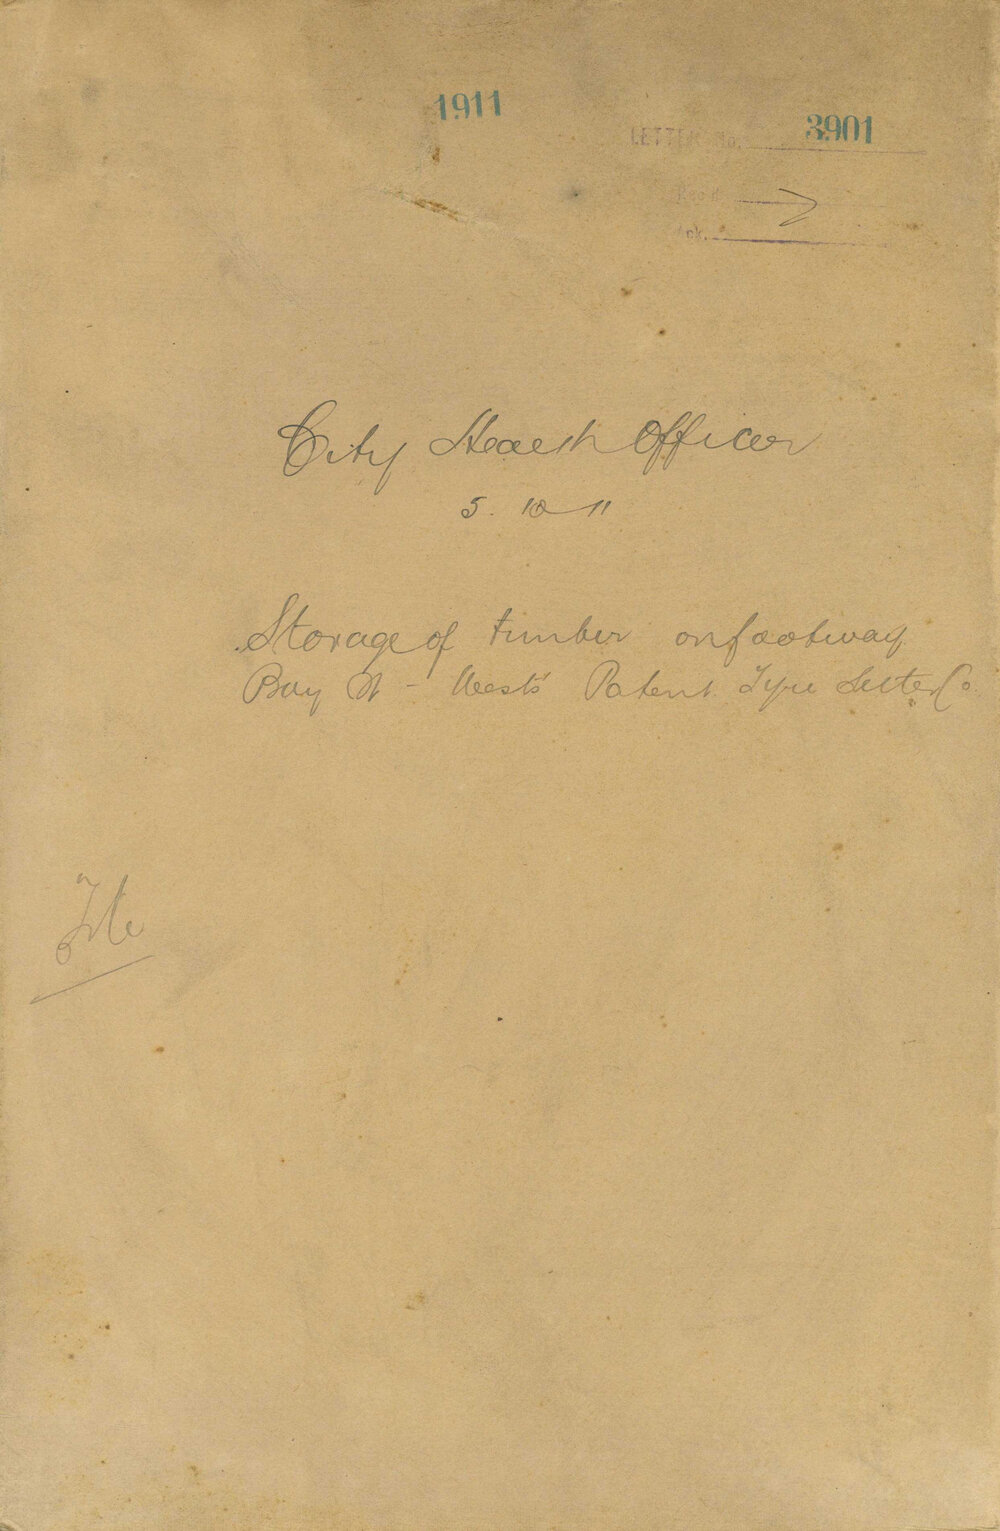 1911
LETTER No. 3901
Rec'd
Ack.
City Health Officer
5. 10 11
Storage of timber on footway
Bay St - West's Patent Tyre Setter Co
File